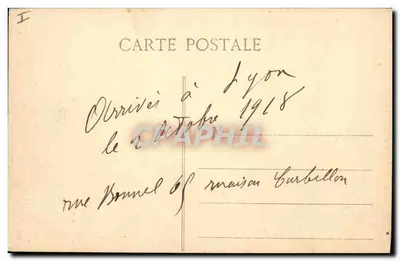 I
CARTE POSTALE
Arrivés à Lyon
le 2 octobre 1918
CPAPHIL
rue Bonnel 65 maison Carbillon